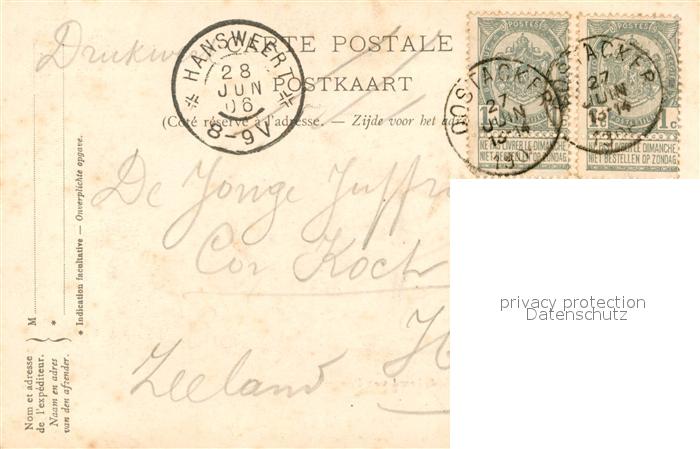 Drukw
CARTE POSTALE
POSTKAART
(Côté réservé à l'adresse. — Zijde voor het adres
HANSWEERT
28
JUN
06
8-9V
POSTES
POSTES
OOSTACKER
27
JUIN
13-14
OOSTACKER
27
JUIN
13-14
1c
NE PAS LIVRER LE DIMANCHE
NIET BESTELLEN OP ZONDAG
NE PAS LIVRER LE DIMANCHE
NIET BESTELLEN OP ZONDAG
De Jonge Juffr
Cor Koch
H
Zeeland
privacy protection
Datenschutz
Nom et adresse
de l'expéditeur.
Naam en adres
van den afzender.
M
*
* Indication facultative — Onverplichte opgave.